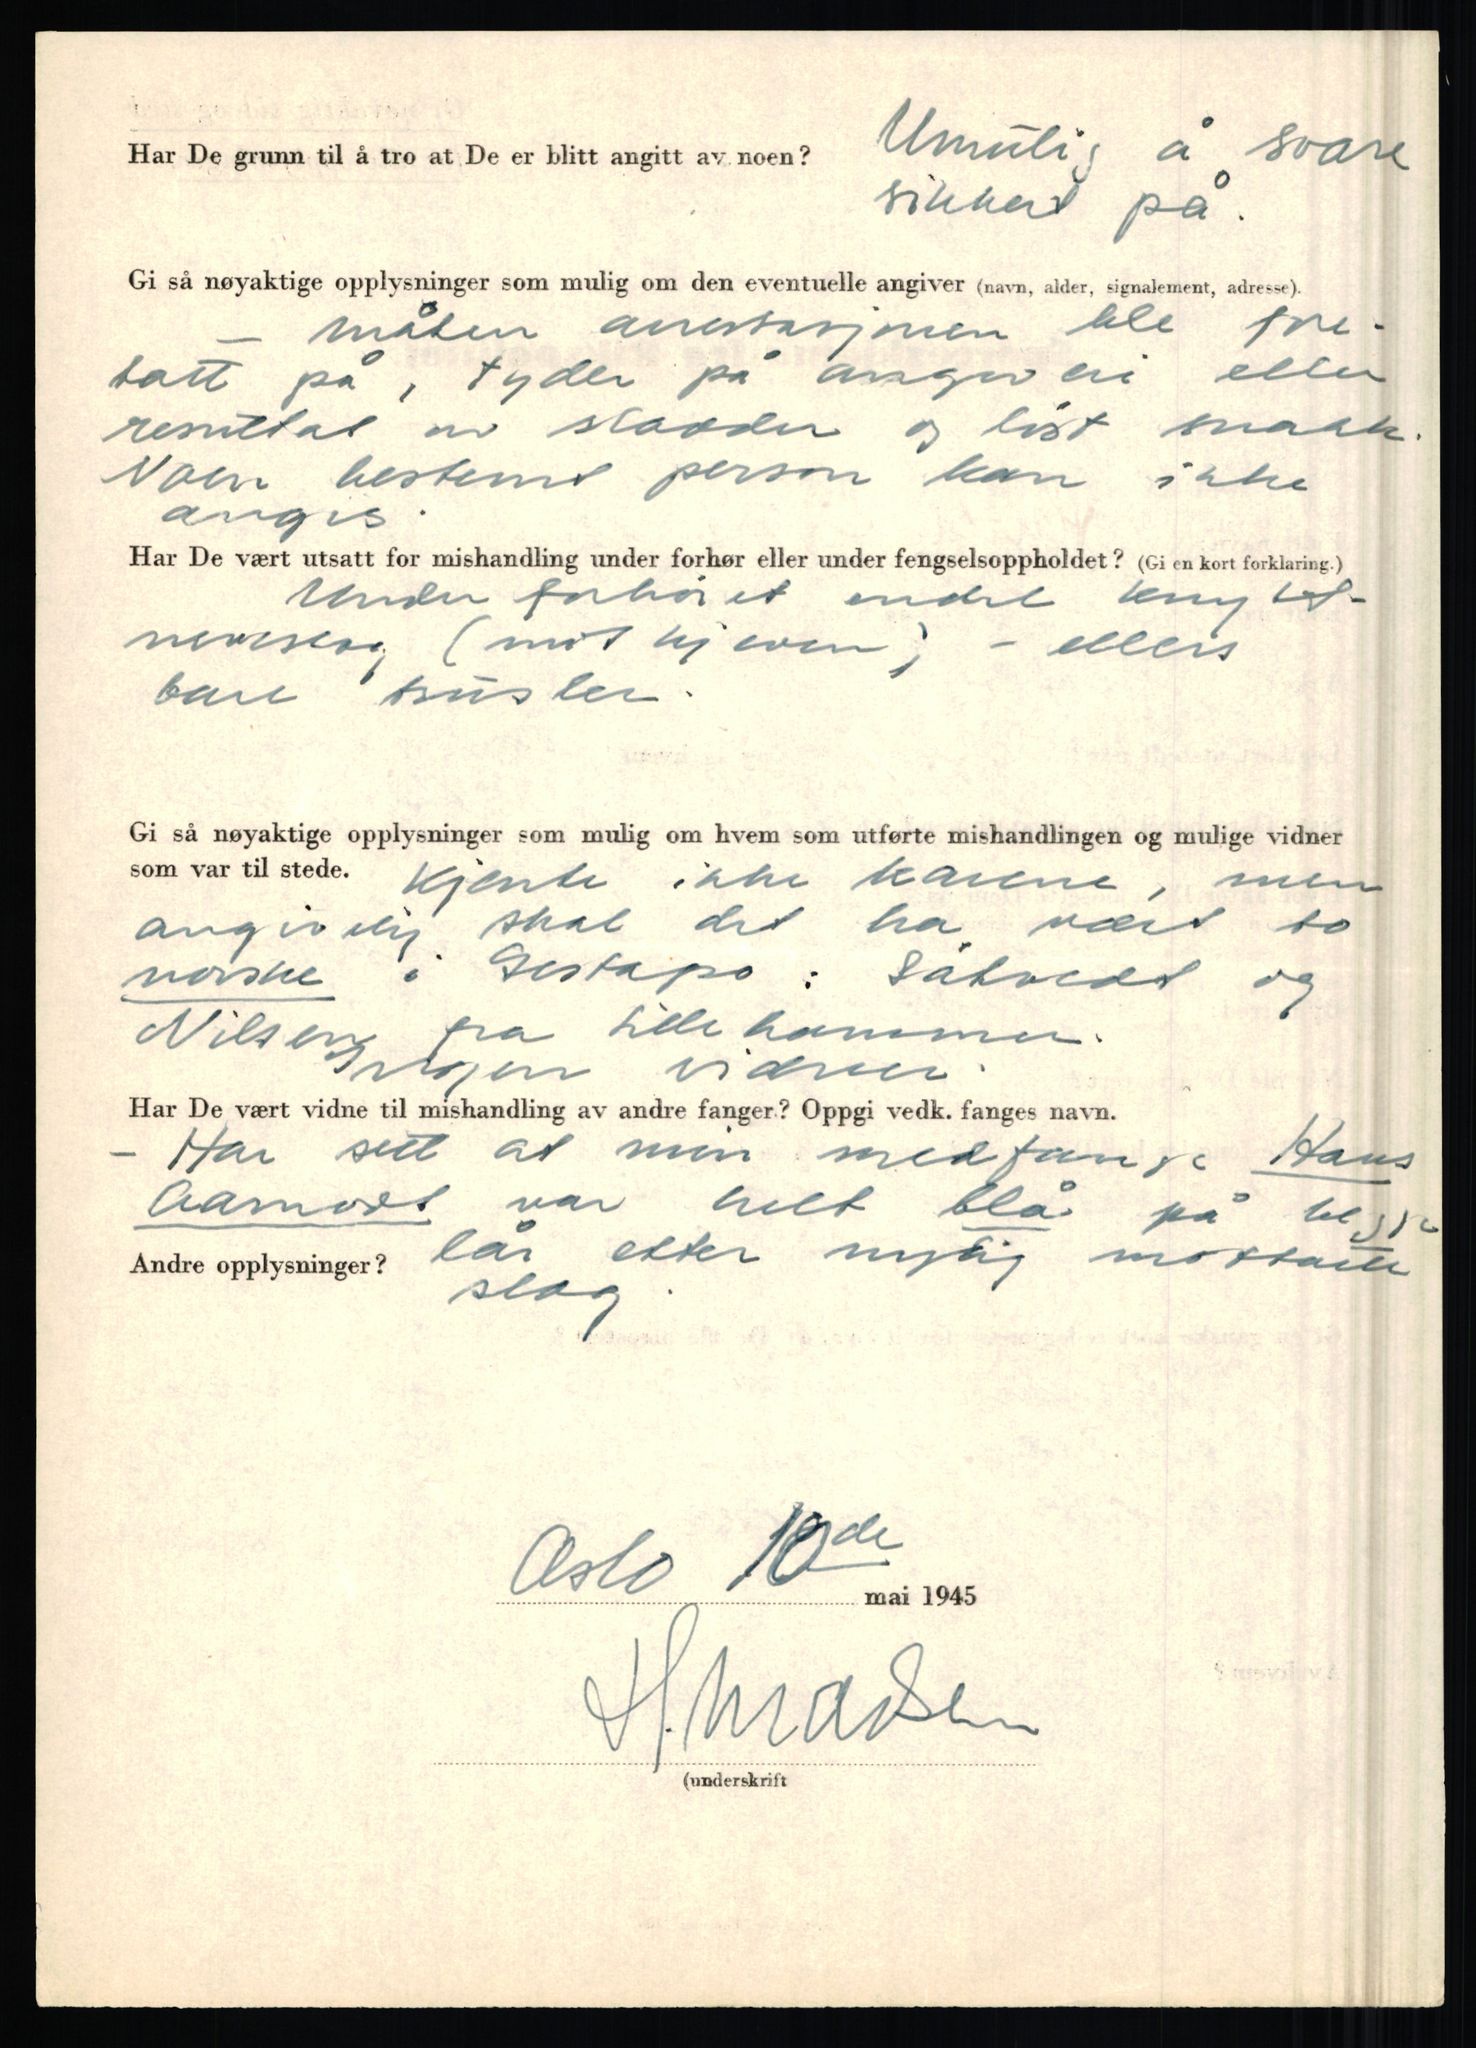 Har De grunn til å tro at De er blitt angitt av noen? Umulig å svare
sikkert på.
Gi så nøyaktige opplysninger som mulig om den eventuelle angiver (navn, alder, signalement, adresse).
– Måten arrestasjonen ble fore-
tatt på, tyder på angiveri eller
resultat av sladder og løst snakk.
Noen bestemt person kan ikke
angis.
Har De vært utsatt for mishandling under forhør eller under fengselsoppholdet? (Gi en kort forklaring.)
Under forhøret endel knyt-
neveslag (mot kjeven) – ellers
bare trusler.
Gi så nøyaktige opplysninger som mulig om hvem som utførte mishandlingen og mulige vidner
som var til stede. Kjente ikke karene, men
angivelig skal det ha vært to
norske i Gestapo: Såtvedt og
Nilsen fra Lillehammer.
Ingen vidner.
Har De vært vidne til mishandling av andre fanger? Oppgi vedk. fanges navn.
– Har sett at min medfange Hans
Aamodt var helt blå på begge
Andre opplysninger? lår etter nylig mottatte
slag.
Oslo 10de mai 1945
H. Madsen
(underskrift